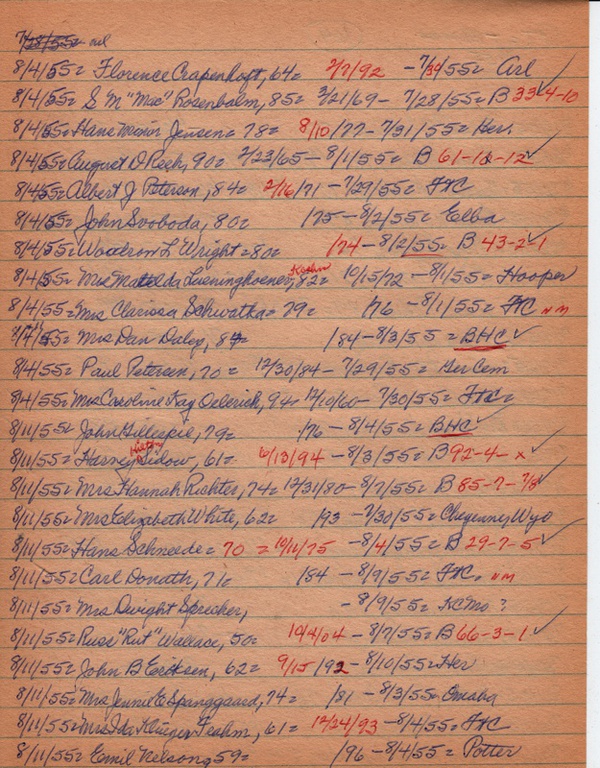 7/28/55= arl
8/4/55= Florence Crapenhoft, 64= 2/7/92 - 7/30/55= Arl
8/4/55= S M "Mac" Rosenbalm, 85= 2/21/69 - 7/28/55= B 33-4-10 ✓
8/4/55= Hans Minor Jensen= 78= 8/10/77 - 7/31/55= Her.
8/4/55= August O Rech, 90= 2/23/65 - 8/1/55= B 61-12-12 ✓
8/4/55= Albert J Peterson, 84= 2/16/71 - 7/29/55= FtC
8/4/55= John Svoboda, 80= /75 - 8/2/55= Elba
8/4/55= Woodrow L Wright= 80= /74 - 8/2/55= B 43-2-1 ✓
8/4/55= Mrs Matelda 82= 10/15/72 - 8/1/55= Hooper
8/4/55= Mrs Clarissa Schwatka= 79= /76 - 8/1/55= FtC NM
8/4/55= Mrs Dan Daley, 84= /84 - 8/3/55= BHC ✓
8/4/55= Paul Petersen, 70= 12/30/84 - 7/29/55= Ger Cem
8/4/55= Mrs Caroline Kay Oelerich, 94= 12/10/60 - 7/30/55= FtC=
8/11/55= John Gillespie, 79= /76 - 8/4/55= BHC ✓
8/11/55= Harvey Hilton Sidow, 61= 6/13/94 - 8/3/55= B 92-4-x ✓
8/11/55= Mrs Hannah Richter, 74= 12/31/80 - 8/7/55= B 85-7-7/8 ✓
8/11/55= Mrs Elizabeth White, 62= /93 - 7/30/55= Cheyenny Wyo
8/11/55= Hans Schneede= 70 = 10/11/75 - 8/4/55= B 29-7-5 ✓
8/11/55= Carl Donath, 71= /84 - 8/9/55= FtC. NM
8/11/55= Mrs Dwight Sprecher, - 8/9/55= KC Mo ?
8/11/55= Russ "Rut" Wallace, 50= 10/4/04 - 8/7/55= B 66-3-1 ✓
8/11/55= John B Erittsen, 62= 9/15/92 - 8/10/55= Her
8/11/55= Mrs Jennie E Spanggaard, 74= /81 - 8/3/55= Omaha
8/11/55= Mrs Ida Klueger Frahm, 61= 12/24/93 - 8/4/55= FtC
8/11/55= Emil Nelson, 59= /96 - 8/4/55= Potter